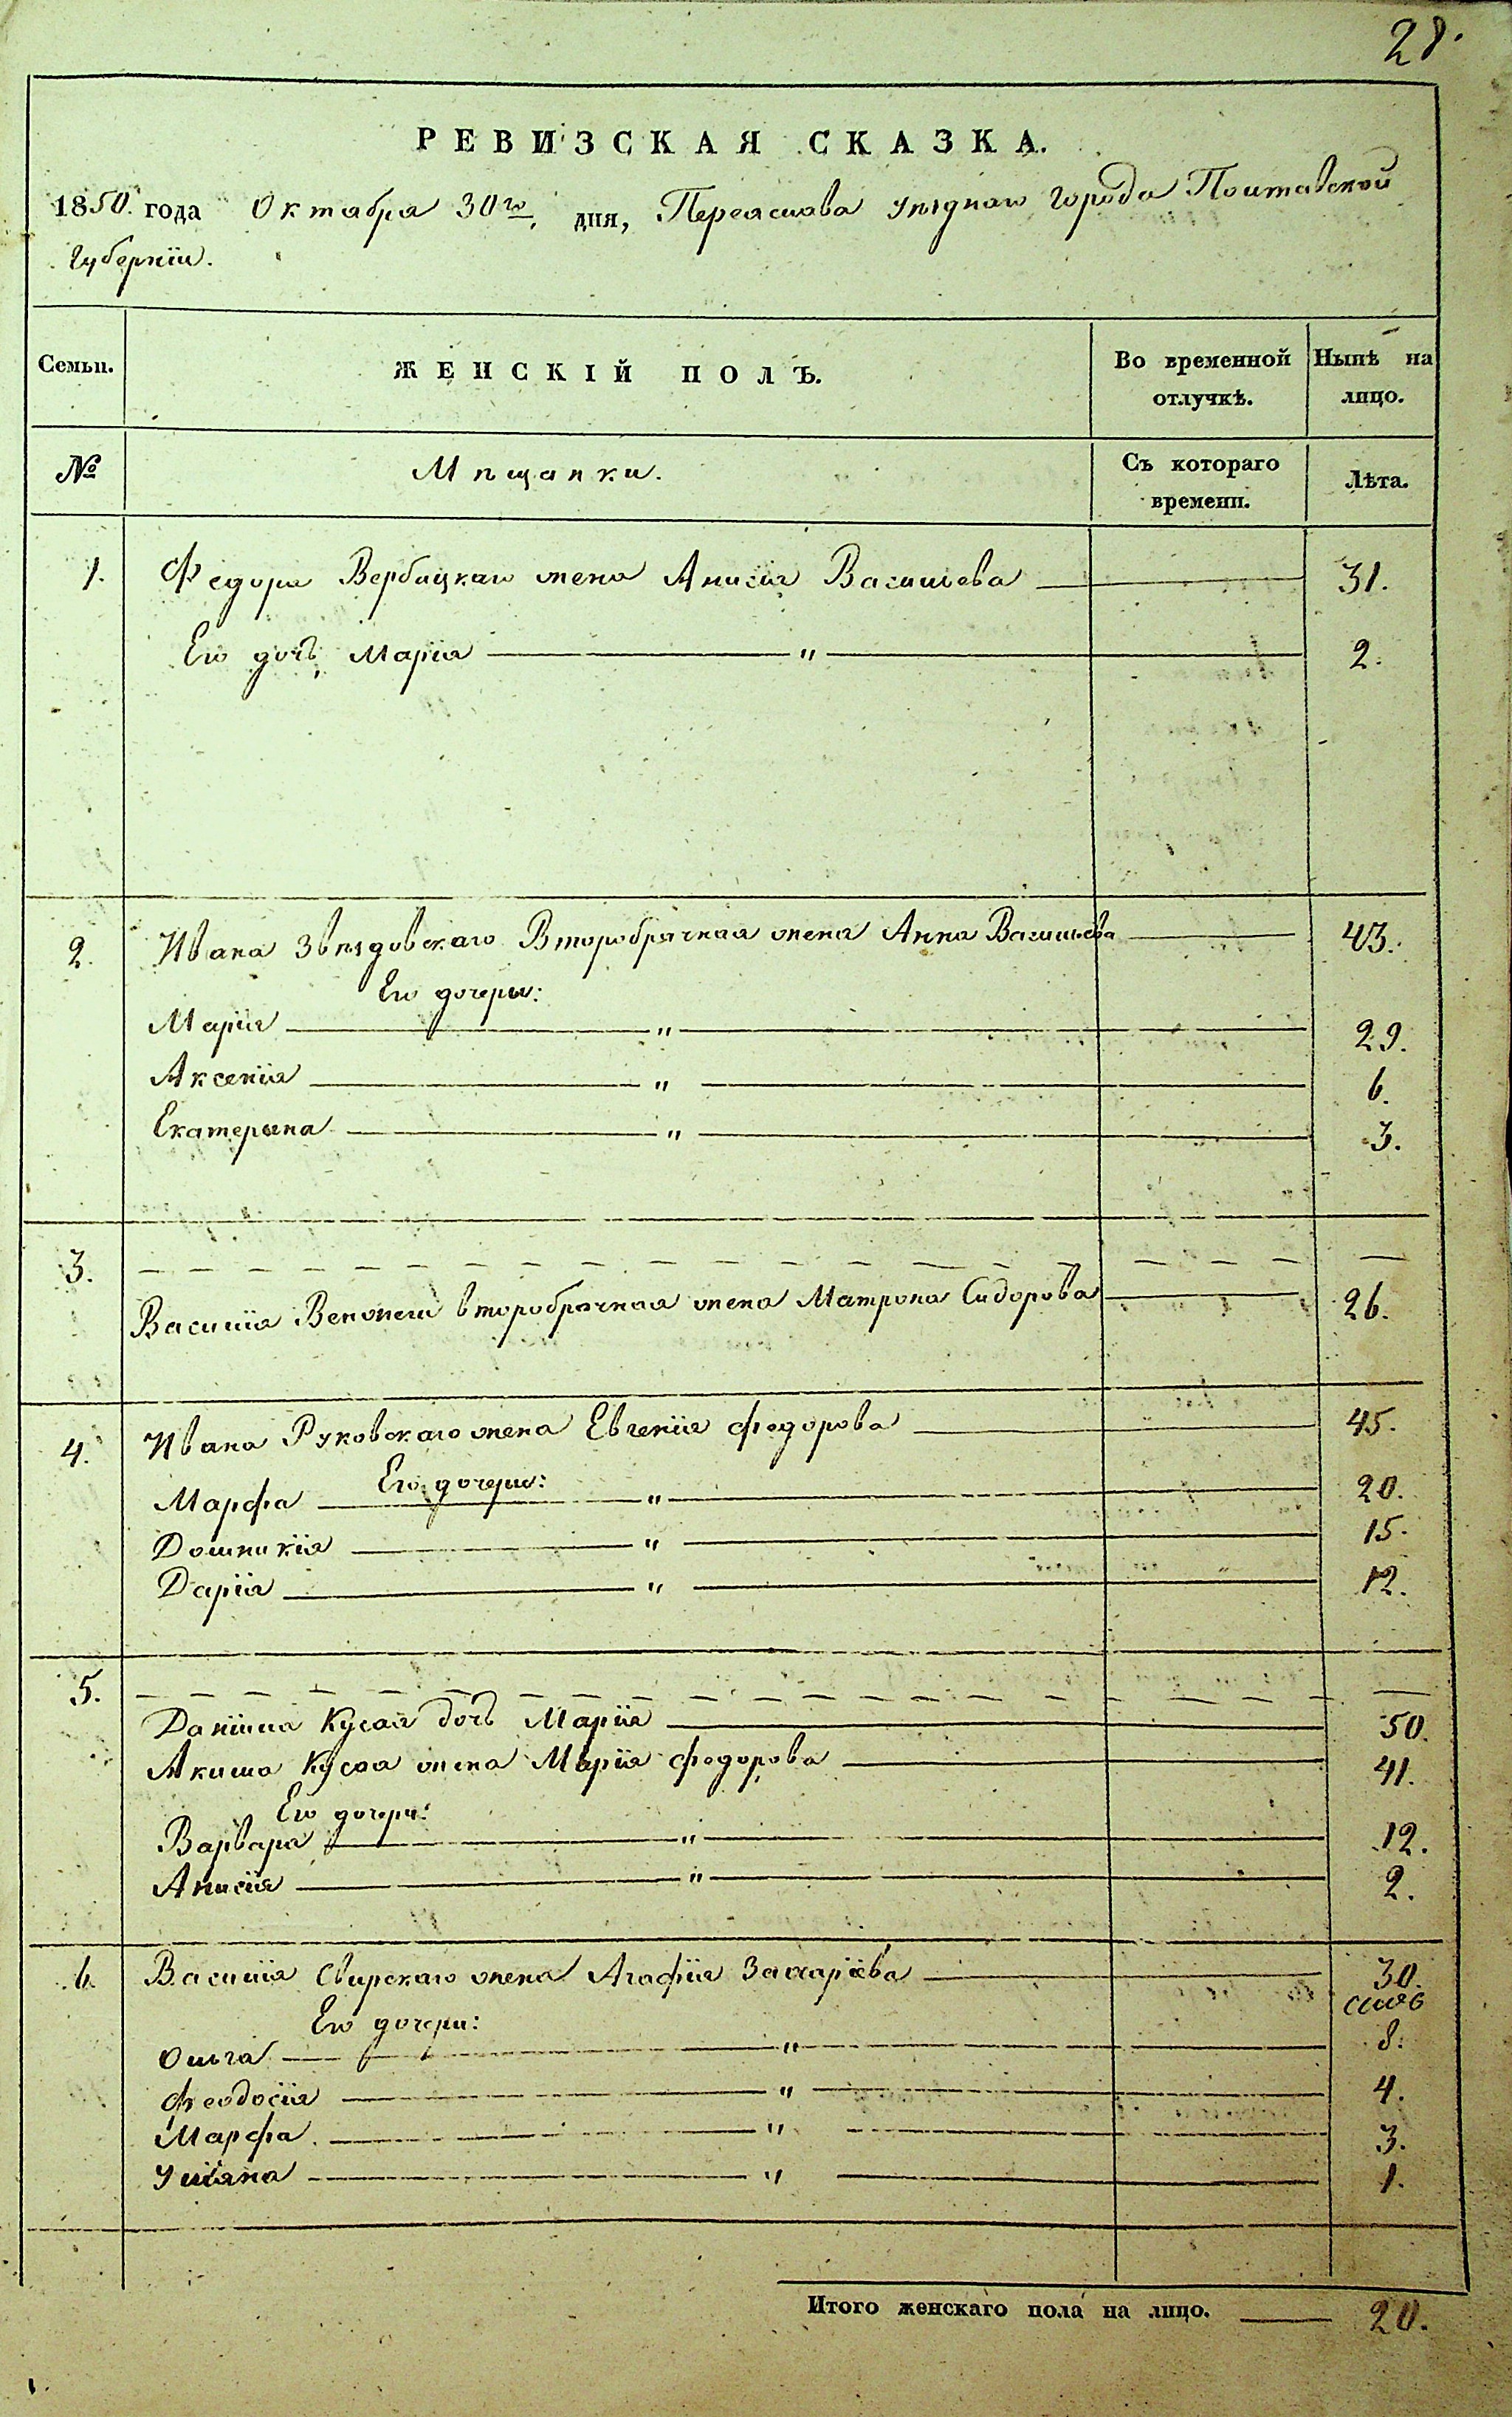 28.
РЕВИЗСКАЯ СКАЗКА.
1850. года Октабра 30го. дня, Переяслава уѣзднаго города Полтавской
губерніи.
Семьи. ЖЕНСКІЙ ПОЛЪ. Во временной отлучкѣ. Нынѣ на лицо.
№ Мѣщанки. Съ котораго времени. Лѣта.
1. Федора Вербицкаго жена Анисія Васильева 31.
Его дочь Марія " 2.
2. Ивана Звѣздовскаго Второбрачная жена Анна Васильева 43.
Его дочери:
Марія " 29.
Аксенія " 6.
Екатерына " 3.
3.
Василія второбрачная жена Матрона Сидорова 26.
4. Ивана Руковскаго жена Евгенія Федорова 45.
Его дочери:
Марфа " 20.
Домникія " 15.
Дарія " 12.
5.
Даніила Кусая дочь Марія 50.
Акима Кусая жена Марія Федорова 41.
Его дочери:
Варвара " 12.
Анисія " 2.
6. Василія Свирскаго жена Агафія Захаріева 30.
Его дочери:
Ольга " 8.
Феодосія " 4.
Марфа " 3.
Уліяна " 1.
Итого женскаго пола на лицо. 20.